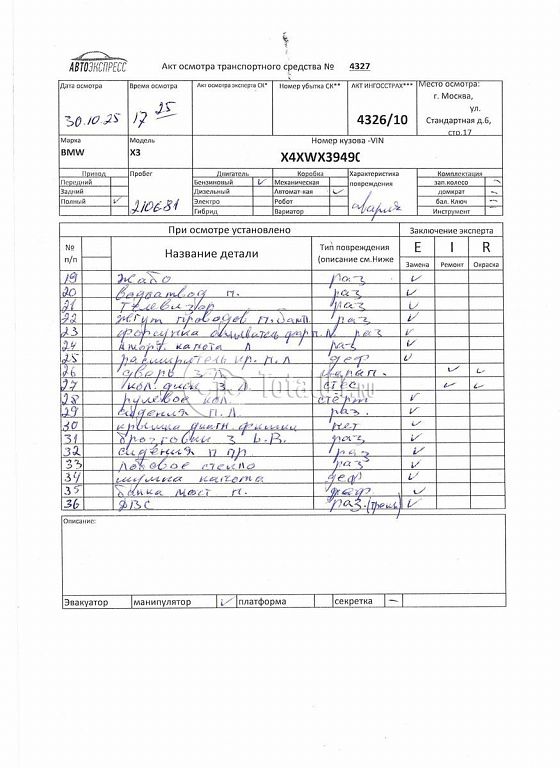 АВТОЭКСПРЕСС
Акт осмотра транспортного средства № 4327
Дата осмотра Время осмотра Акт осмотра эксперта СК* Номер убытка СК** АКТ ИНГОССТРАХ*** Место осмотра:
30.10.25 17 25 4326/10 г. Москва,
ул.
Стандартная д.6,
стр.17
Марка Модель Номер кузова -VIN
BMW X3 X4XWX3949
Привод Пробег Двигатель Коробка Характеристика повреждения Комплектация
Передний Бензиновый ✓ Механическая зап.колесо –
Задний Дизельный Автомат-кая ✓ домкрат –
Полный ✓ 210681 Электро Робот авария бал. Ключ –
Гибрид Вариатор Инструмент –
При осмотре установлено Заключение эксперта
№ п/п Название детали Тип повреждения (описание см.Ниже E I R
Замена Ремонт Окраска
19 жабо раз ✓
20 водоотвод п. раз ✓
21 телевизор раз ✓
22 жгут проводов п. бамп раз ✓
23 форсунка омыватель фар п.п раз ✓
24 аморт. капота л раз ✓
25 расширитель кр. п.л деф ✓
26 дверь з л царап. ✓ ✓
27 кол. диск з л ✓ ✓
28 рулевое кол. стёрт ✓
29 сидения п.л. раз. ✓
30 крышка диагн. фишки нет ✓
31 з раз ✓
32 сидения п пр. раз ✓
33 лобовое стекло раз ✓
34 шумка капота деф ✓
35 балка мост п. деф ✓
36 ДВС раз. ✓
Описание:
Эвакуатор манипулятор ✓ платформа секретка –